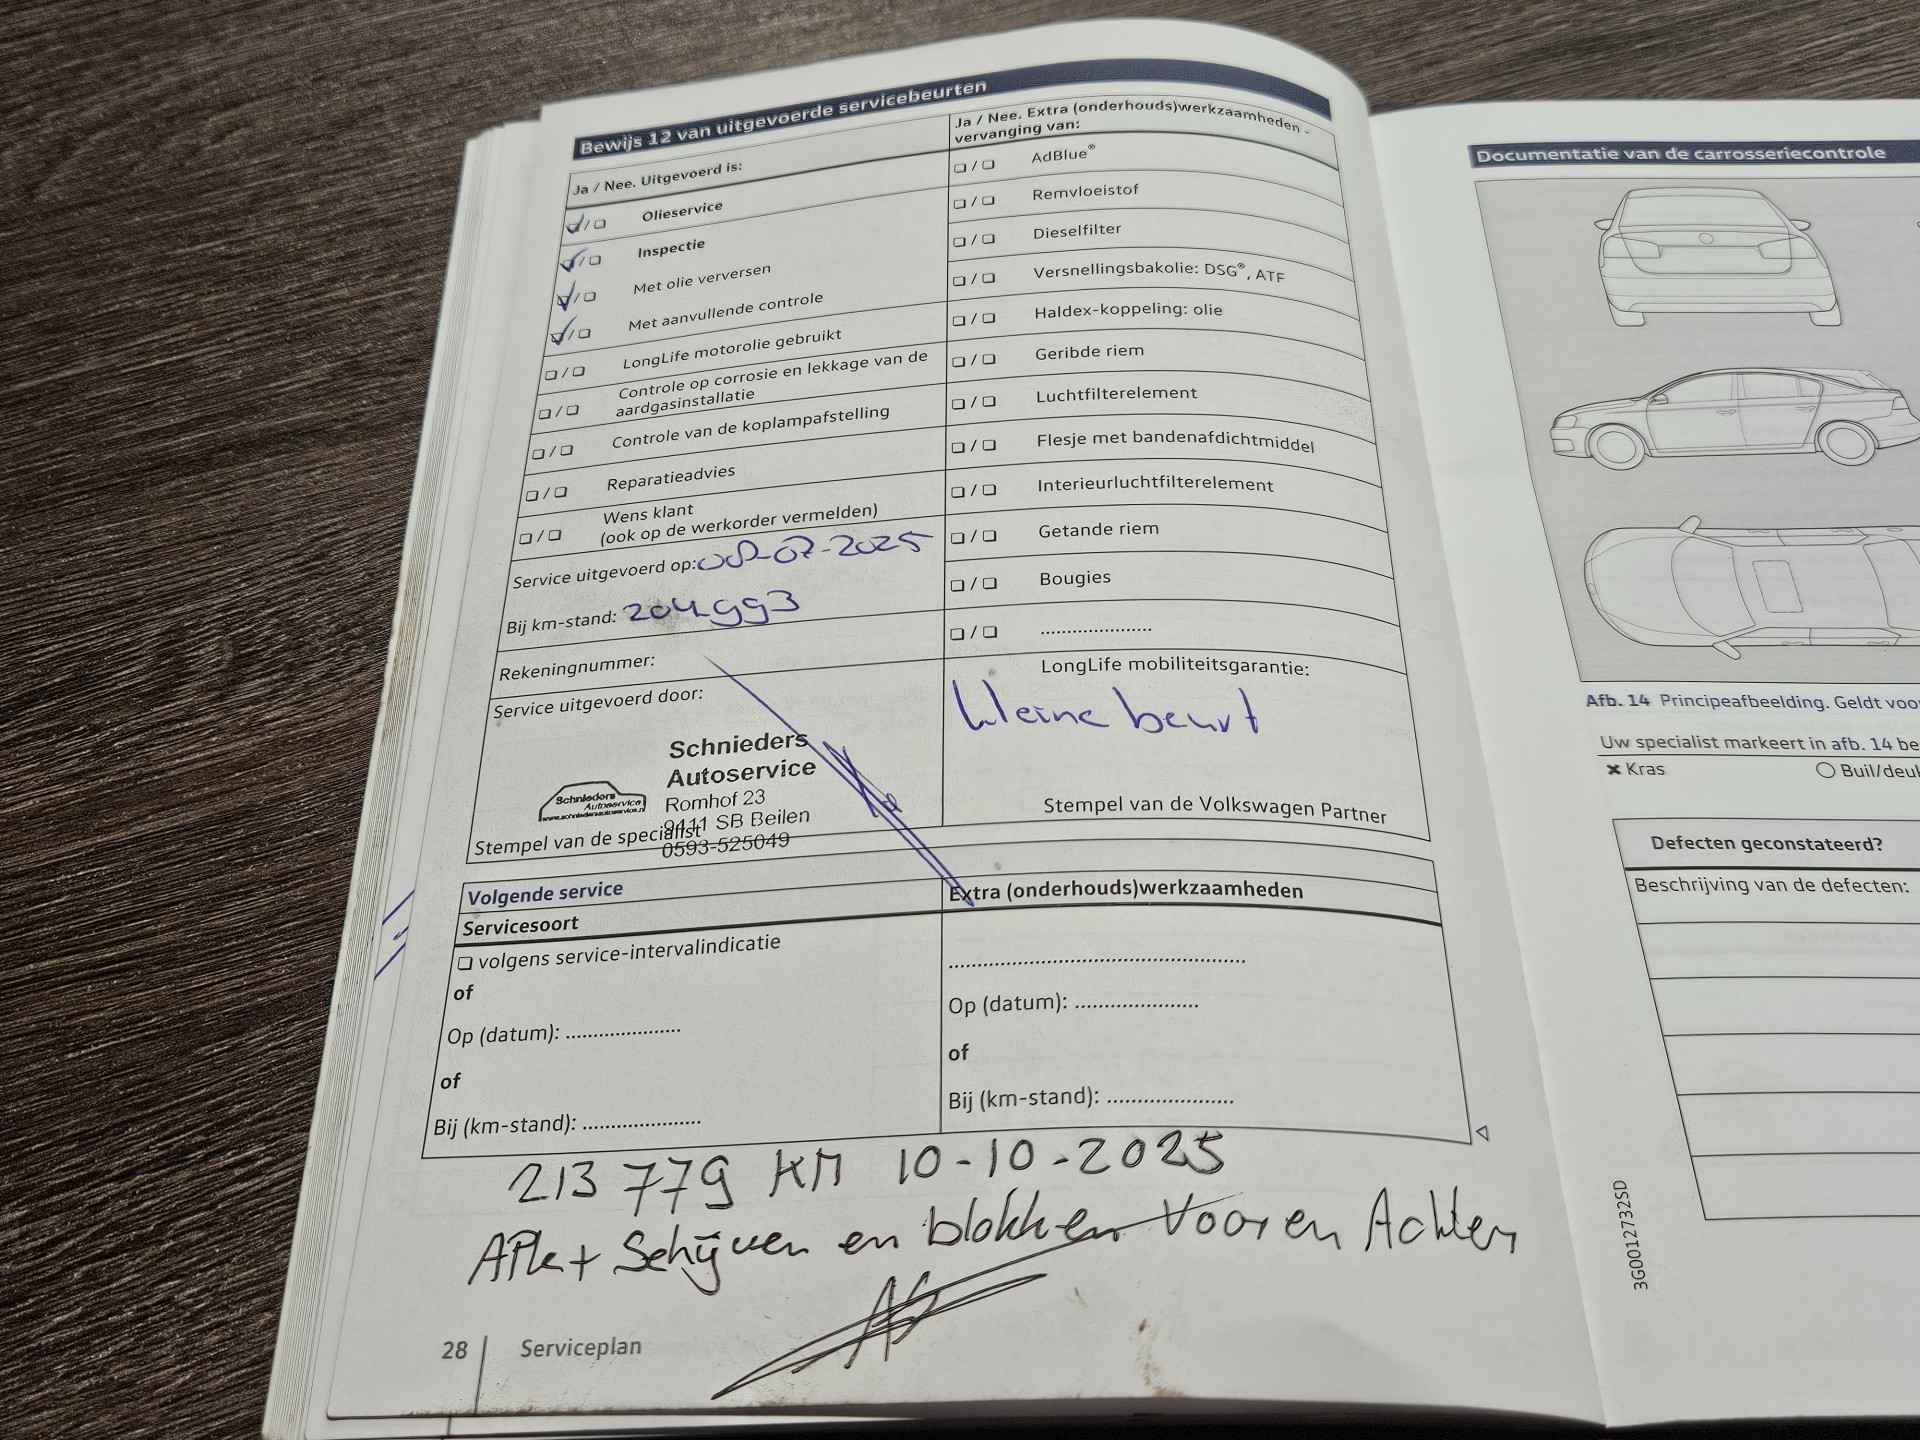 Bewijs 12 van uitgevoerde servicebeurten
Ja / Nee. Uitgevoerd is:
Olieservice
Inspectie
Met olie verversen
Met aanvullende controle
LongLife motorolie gebruikt
Controle op corrosie en lekkage van de
aardgasinstallatie
Controle van de koplampafstelling
Reparatieadvies
Wens klant
(ook op de werkorder vermelden)
Service uitgevoerd op: 08-07-2025
Bij km-stand: 204993
Rekeningnummer:
Service uitgevoerd door:
Schnieders
Autoservice
Romhof 23
9411 SB Beilen
0593-525049
Schnieders
Autoservice
www.schniedersautoservice.nl
Stempel van de specialist
Ja / Nee. Extra (onderhouds)werkzaamheden -
vervanging van:
AdBlue®
Remvloeistof
Dieselfilter
Versnellingsbakolie: DSG®, ATF
Haldex-koppeling: olie
Geribde riem
Luchtfilterelement
Flesje met bandenafdichtmiddel
Interieurluchtfilterelement
Getande riem
Bougies
....................
LongLife mobiliteitsgarantie:
kleine beurt
Stempel van de Volkswagen Partner
Volgende service
Servicesoort
volgens service-intervalindicatie
of
Op (datum): ....................
of
Bij (km-stand): ....................
Extra (onderhouds)werkzaamheden
..................................................
Op (datum): .....................
of
Bij (km-stand): ......................
213 779 KM 10-10-2025
APk + Schijven en blokken Voor en Achter
28 Serviceplan
Documentatie van de carrosseriecontrole
Afb. 14 Principeafbeelding. Geldt voo
Uw specialist markeert in afb. 14 be
Kras
Buil/deuk
Defecten geconstateerd?
Beschrijving van de defecten:
3G0012732SD